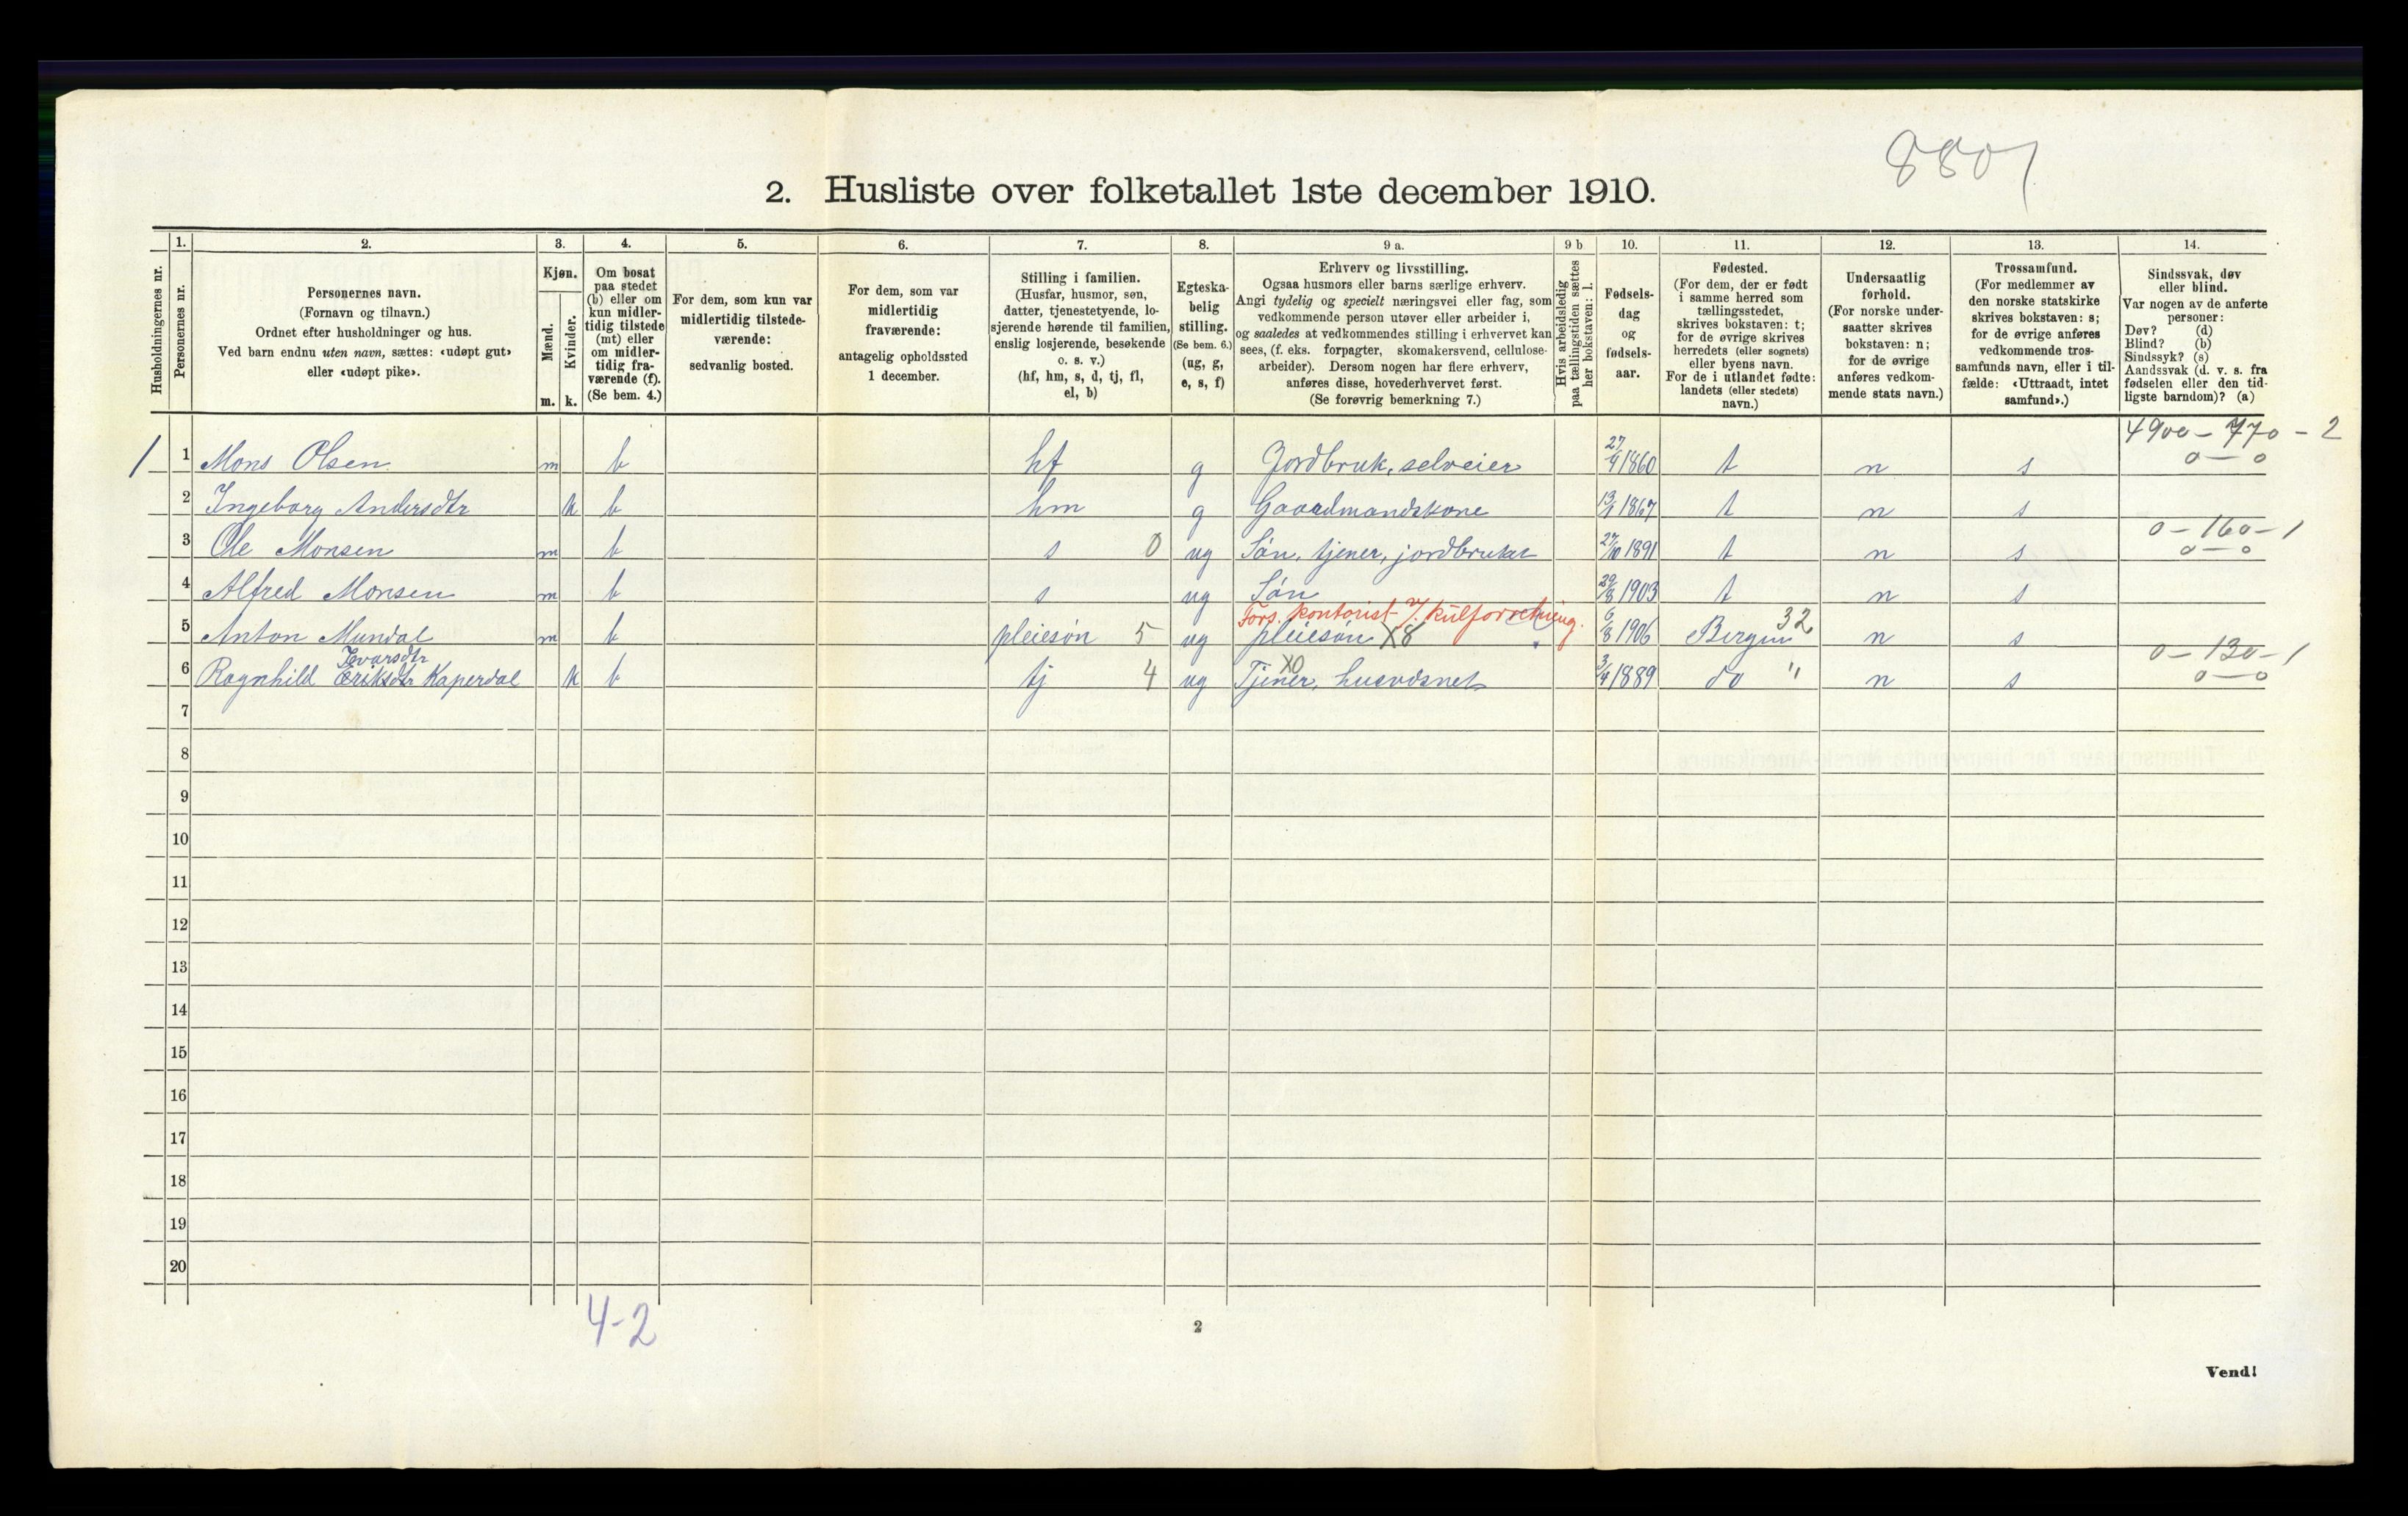 8801
2. Husliste over folketallet 1ste december 1910.
Husholdningernes nr.
1. Personernes nr.
2. Personernes navn.
(Fornavn og tilnavn.)
Ordnet efter husholdninger og hus.
Ved barn endnu uten navn, sættes: «udøpt gut»
eller «udøpt pike».
3. Kjøn.
Mænd. Kvinder.
m. k.
4. Om bosat
paa stedet
(b) eller om
kun midler-
tidig tilstede
(mt) eller
om midler-
tidig fra-
værende (f).
(Se bem. 4.)
5. For dem, som kun var
midlertidig tilstede-
værende:
sedvanlig bosted.
6. For dem, som var
midlertidig
fraværende:
antagelig opholdssted
1 december.
7. Stilling i familien.
(Husfar, husmor, søn,
datter, tjenestetyende, lo-
sjerende hørende til familien,
enslig losjerende, besøkende
o. s. v.)
(hf, hm, s, d, tj, fl,
el, b)
8. Egteska-
belig
stilling.
(Se bem. 6.)
(ug, g,
e, s, f)
9 a. Erhverv og livsstilling.
Ogsaa husmors eller barns særlige erhverv.
Angi tydelig og specielt næringsvei eller fag, som
vedkommende person utøver eller arbeider i,
og saaledes at vedkommendes stilling i erhvervet kan
sees, (f. eks. forpagter, skomakersvend, cellulose-
arbeider). Dersom nogen har flere erhverv,
anføres disse, hovederhvervet først.
(Se forøvrig bemerkning 7.)
9 b Hvis arbeidsledig
paa tællingstiden sættes
her bokstaven: l.
10. Fødsels-
dag
og
fødsels-
aar.
11. Fødested.
(For dem, der er født
i samme herred som
tællingsstedet,
skrives bokstaven: t;
for de øvrige skrives
herredets (eller sognets)
eller byens navn.
For de i utlandet fødte:
landets (eller stedets)
navn.)
12. Undersaatlig
forhold.
(For norske under-
saatter skrives
bokstaven: n;
for de øvrige
anføres vedkom-
mende stats navn.)
13. Trossamfund.
(For medlemmer av
den norske statskirke
skrives bokstaven: s;
for de øvrige anføres
vedkommende tros-
samfunds navn, eller i til-
fælde: «Uttraadt, intet
samfund».)
14. Sindssvak, døv
eller blind.
Var nogen av de anførte
personer:
Døv? (d)
Blind? (b)
Sindssyk? (s)
Aandssvak (d. v. s. fra
fødselen eller den tid-
ligste barndom)? (a)
4900 - 770 - 2
1 1 Mons Olsen m b hf g Jordbruk, selveier 27/4 1860 t n s 0 - 0
2 Ingeborg Andersdtr k b hm g Gaardmandskone 1867 t n s
0 - 160 - 1
3 Ole Monsen m b s 0 ug Søn, tjener, jordbruker 27/10 1891 t n s 0 - 0
4 Alfred Monsen m b s ug Søn 29/8 1903 t n s
Fors. kontorist v/. kulforretning.
5 Anton Mundal m b pleiesøn 5 ug pleiesøn X8 6/8 1906 Bergen 32 n s
Ivarsdtr X0 0 - 130 - 1
6 Ragnhild Eriksdtr Kaperdal k b tj 4 ug Tjener, husvæsnet 3/4 1889 do " n s 0 - 0
7
8
9
10
11
12
13
14
15
16
17
18
19
20
4-2
2
Vend!